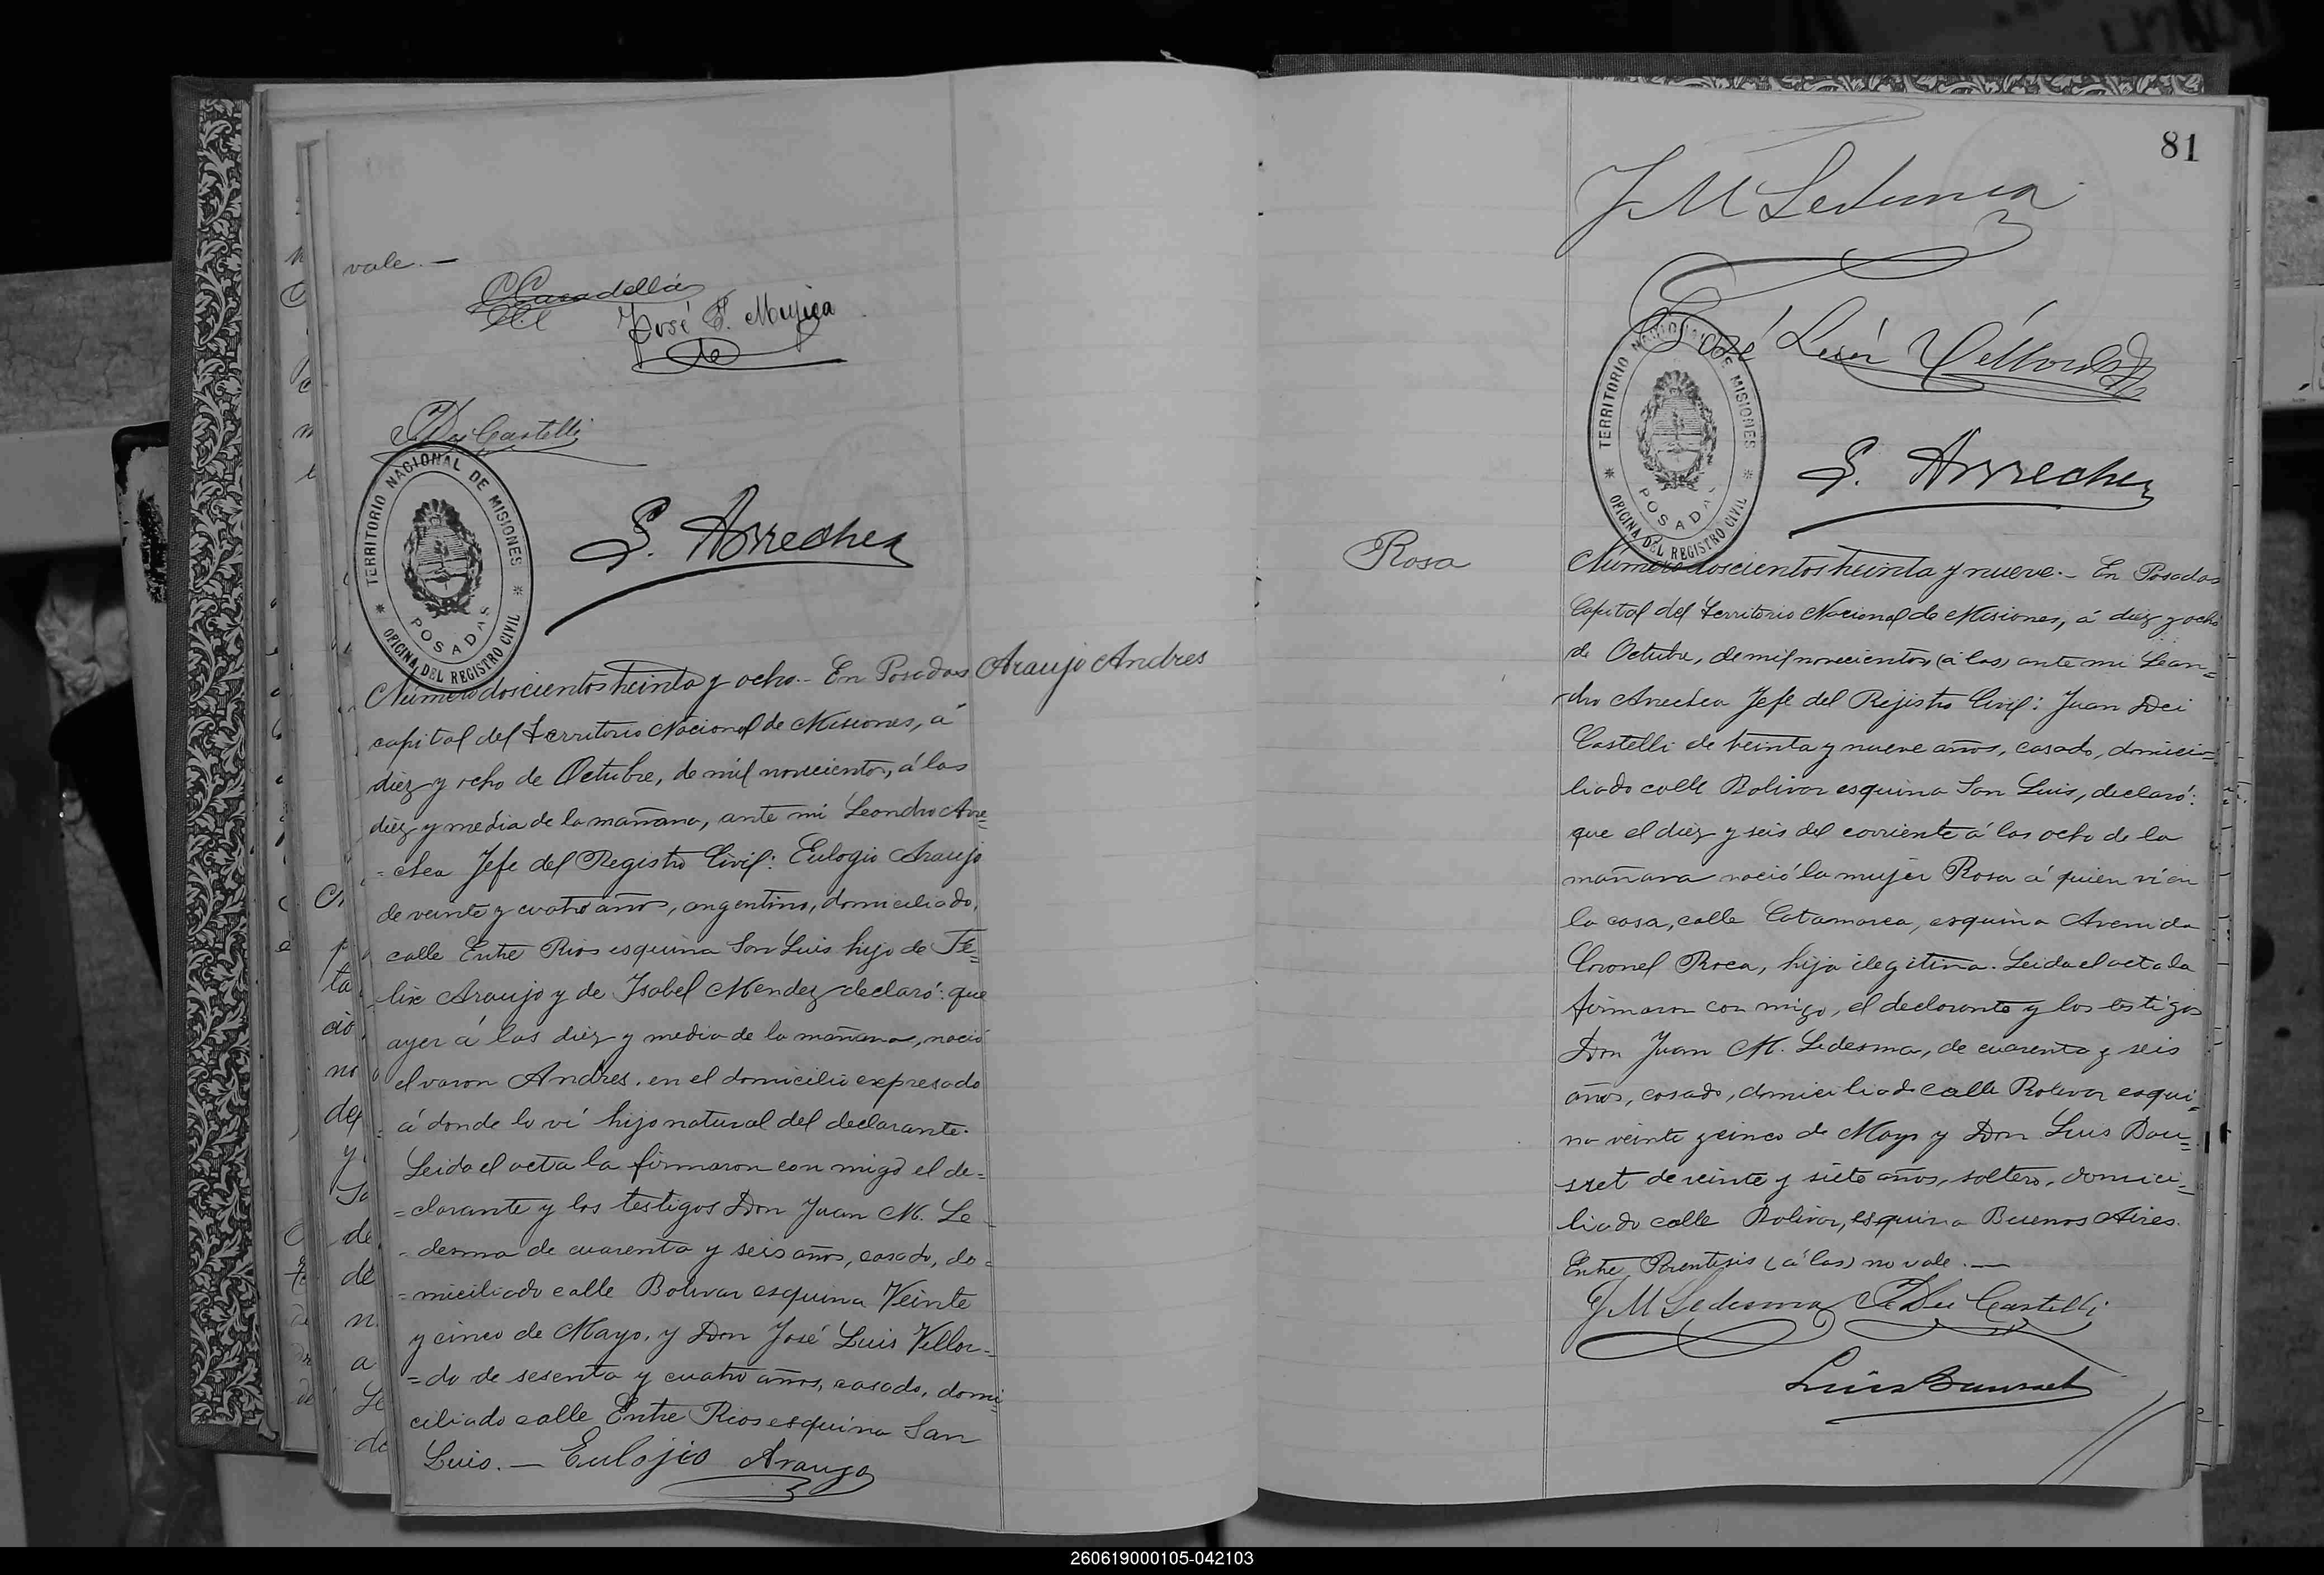 vale.—
José F. Mujica
J Dei Castelli
TERRITORIO NACIONAL DE MISIONES
POSADAS
OFICINA DEL REGISTRO CIVIL
L. Arrechea
Araujo Andres
Número doscientos treinta y ocho.- En Posadas
capital del Territorio Nacional de Misiones, á
diez y ocho de Octubre, de mil novecientos, á las
diez y media de la mañana, ante mi Leandro Arre=
=chea Jefe del Registro Civil: Eulogio Araujo
de veinte y cuatro años, argentino, domiciliado,
calle Entre Rios esquina San Luis hijo de Fe=
lix Araujo y de Isabel Mendez declaró: que
ayer á las diez y media de la mañana, nació
el varon Andres, en el domicilio expresado
á donde lo ví hijo natural del declarante.
Leida el acta la firmaron con migo el de=
=clarante y los testigos Don Juan M. Le
=desma de cuarenta y seis años, casado, do=
=miciliado calle Bolivar esquina Veinte
y cinco de Mayo, y Don José Luis Vellor=
=do de sesenta y cuatro años, casado, domi=
ciliado calle Entre Rios esquina San
Luis.— Eulojio Araujo
81
J M Ledesma
José Luis
TERRITORIO NACIONAL DE MISIONES
POSADAS
OFICINA DEL REGISTRO CIVIL
L. Arrechea
Rosa
Número doscientos treinta y nueve.- En Posadas
Capital del Territorio Nacional de Misiones, á diez y ocho
de Octubre, de mil novecientos, (á las) ante mi Lean=
dro Arrechea Jefe del Rejistro Civil: Juan Dei
Castelli de treinta y nueve años, casado, domici=
liado calle Bolivar esquina San Luis, declaró:
que el diez y seis del corriente á las ocho de la
mañana nació la mujer Rosa á quien ví en
la casa, calle Catamarca, esquina Avenida
Coronel Roca, hija ilegitima. Leida el acta la
firmaron con migo, el declarante y los testigos
Don Juan M. Ledesma, de cuarenta y seis
años, casado, domiciliado calle Bolivar esqui=
na veinte y cinco de Mayo y Don Luis Bau=
sset de veinte y siete años, soltero, domici=
liado calle Bolivar, esquina Buenos Aires.
Entre Parentesis (á las) no vale.—
J M Ledesma J Dei Castelli
Luis Bausset
260619000105-042103